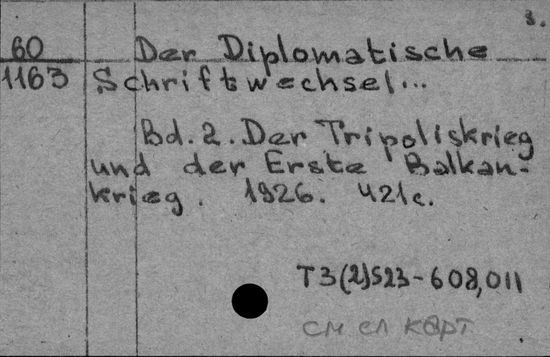 3.
60 Der Diplomatische
1163 Schriftwechsel...
Bd. 2. Der Tripoliskrieg
und der Erste Balkan-
krieg. 1926. 421c.
T3(2)523-608,011
см сл карт